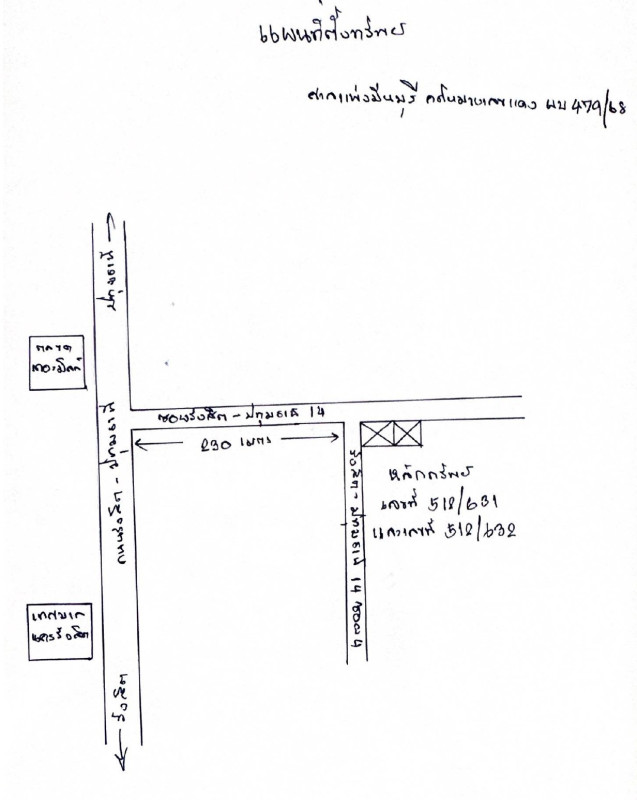 แผนที่ตั้งทรัพย์
ศาลแพ่งมีนบุรี คดีหมายเลขแดง ผบ 479/68
ปทุมธานี
ตลาด
ซอยรังสิต - ปทุมธานี 14
230 เมตร
ถนนรังสิต - ปทุมธานี
รังสิต - ปทุมธานี 14 ซอย 4
หลักทรัพย์
เลขที่ 512/631
และเลขที่ 512/632
เทศบาล
นครรังสิต
รังสิต